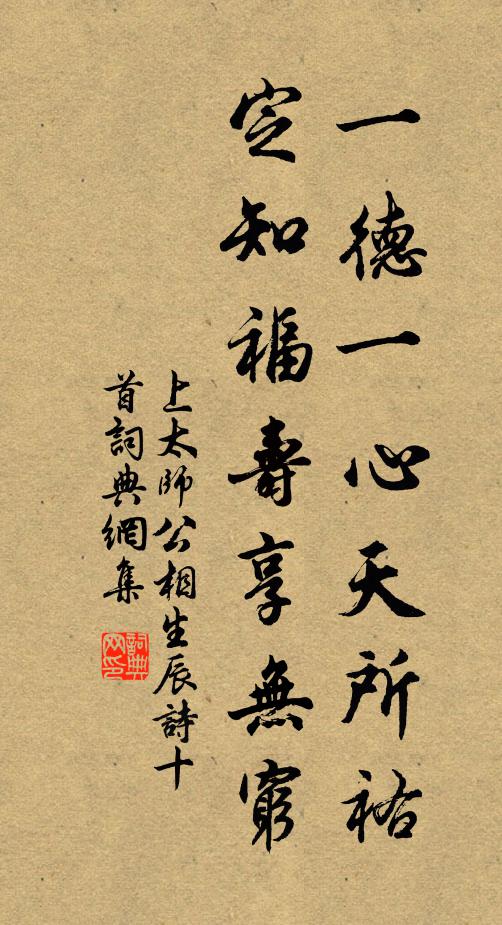 一德一心天所祐
定知福壽享無窮
上太師公相生辰詩十
首詞典網集
詞典
网印